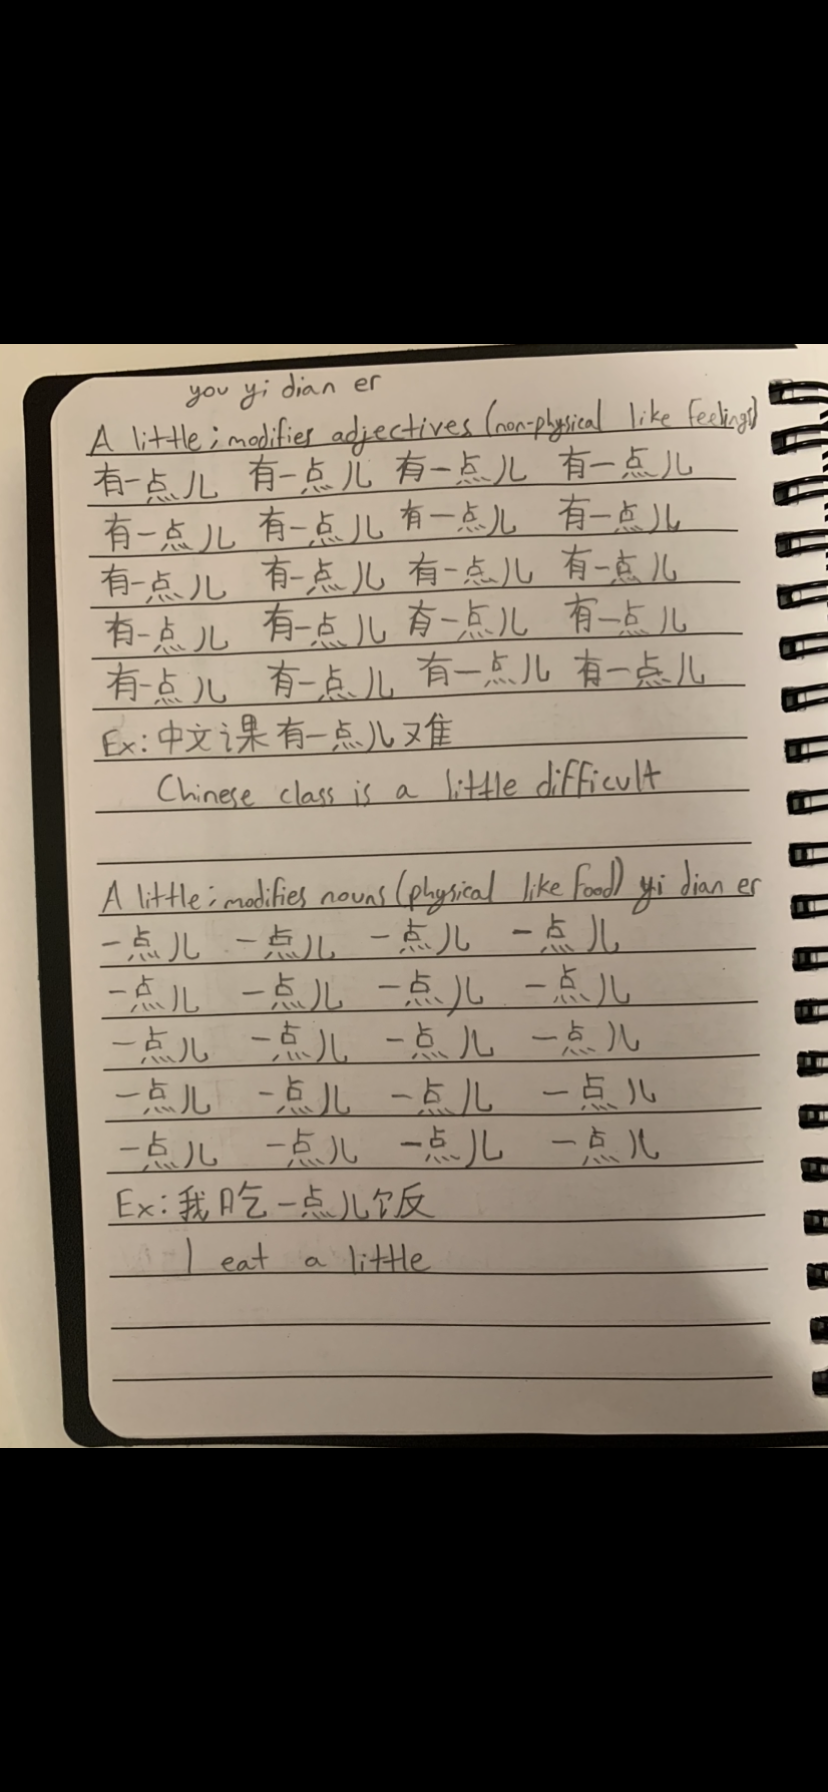 you yi dian er
A little; modifies adjectives (non-physical like feelings)
有一点儿 有一点儿 有一点儿 有一点儿
有一点儿 有一点儿 有一点儿 有一点儿
有一点儿 有一点儿 有一点儿 有一点儿
有一点儿 有一点儿 有一点儿 有一点儿
有一点儿 有一点儿 有一点儿 有一点儿
Ex: 中文课有一点儿难
Chinese class is a little difficult
A little; modifies nouns (physical like food) yi dian er
一点儿 一点儿 一点儿 一点儿
一点儿 一点儿 一点儿 一点儿
一点儿 一点儿 一点儿 一点儿
一点儿 一点儿 一点儿 一点儿
一点儿 一点儿 一点儿 一点儿
Ex: 我吃一点儿饭
I eat a little